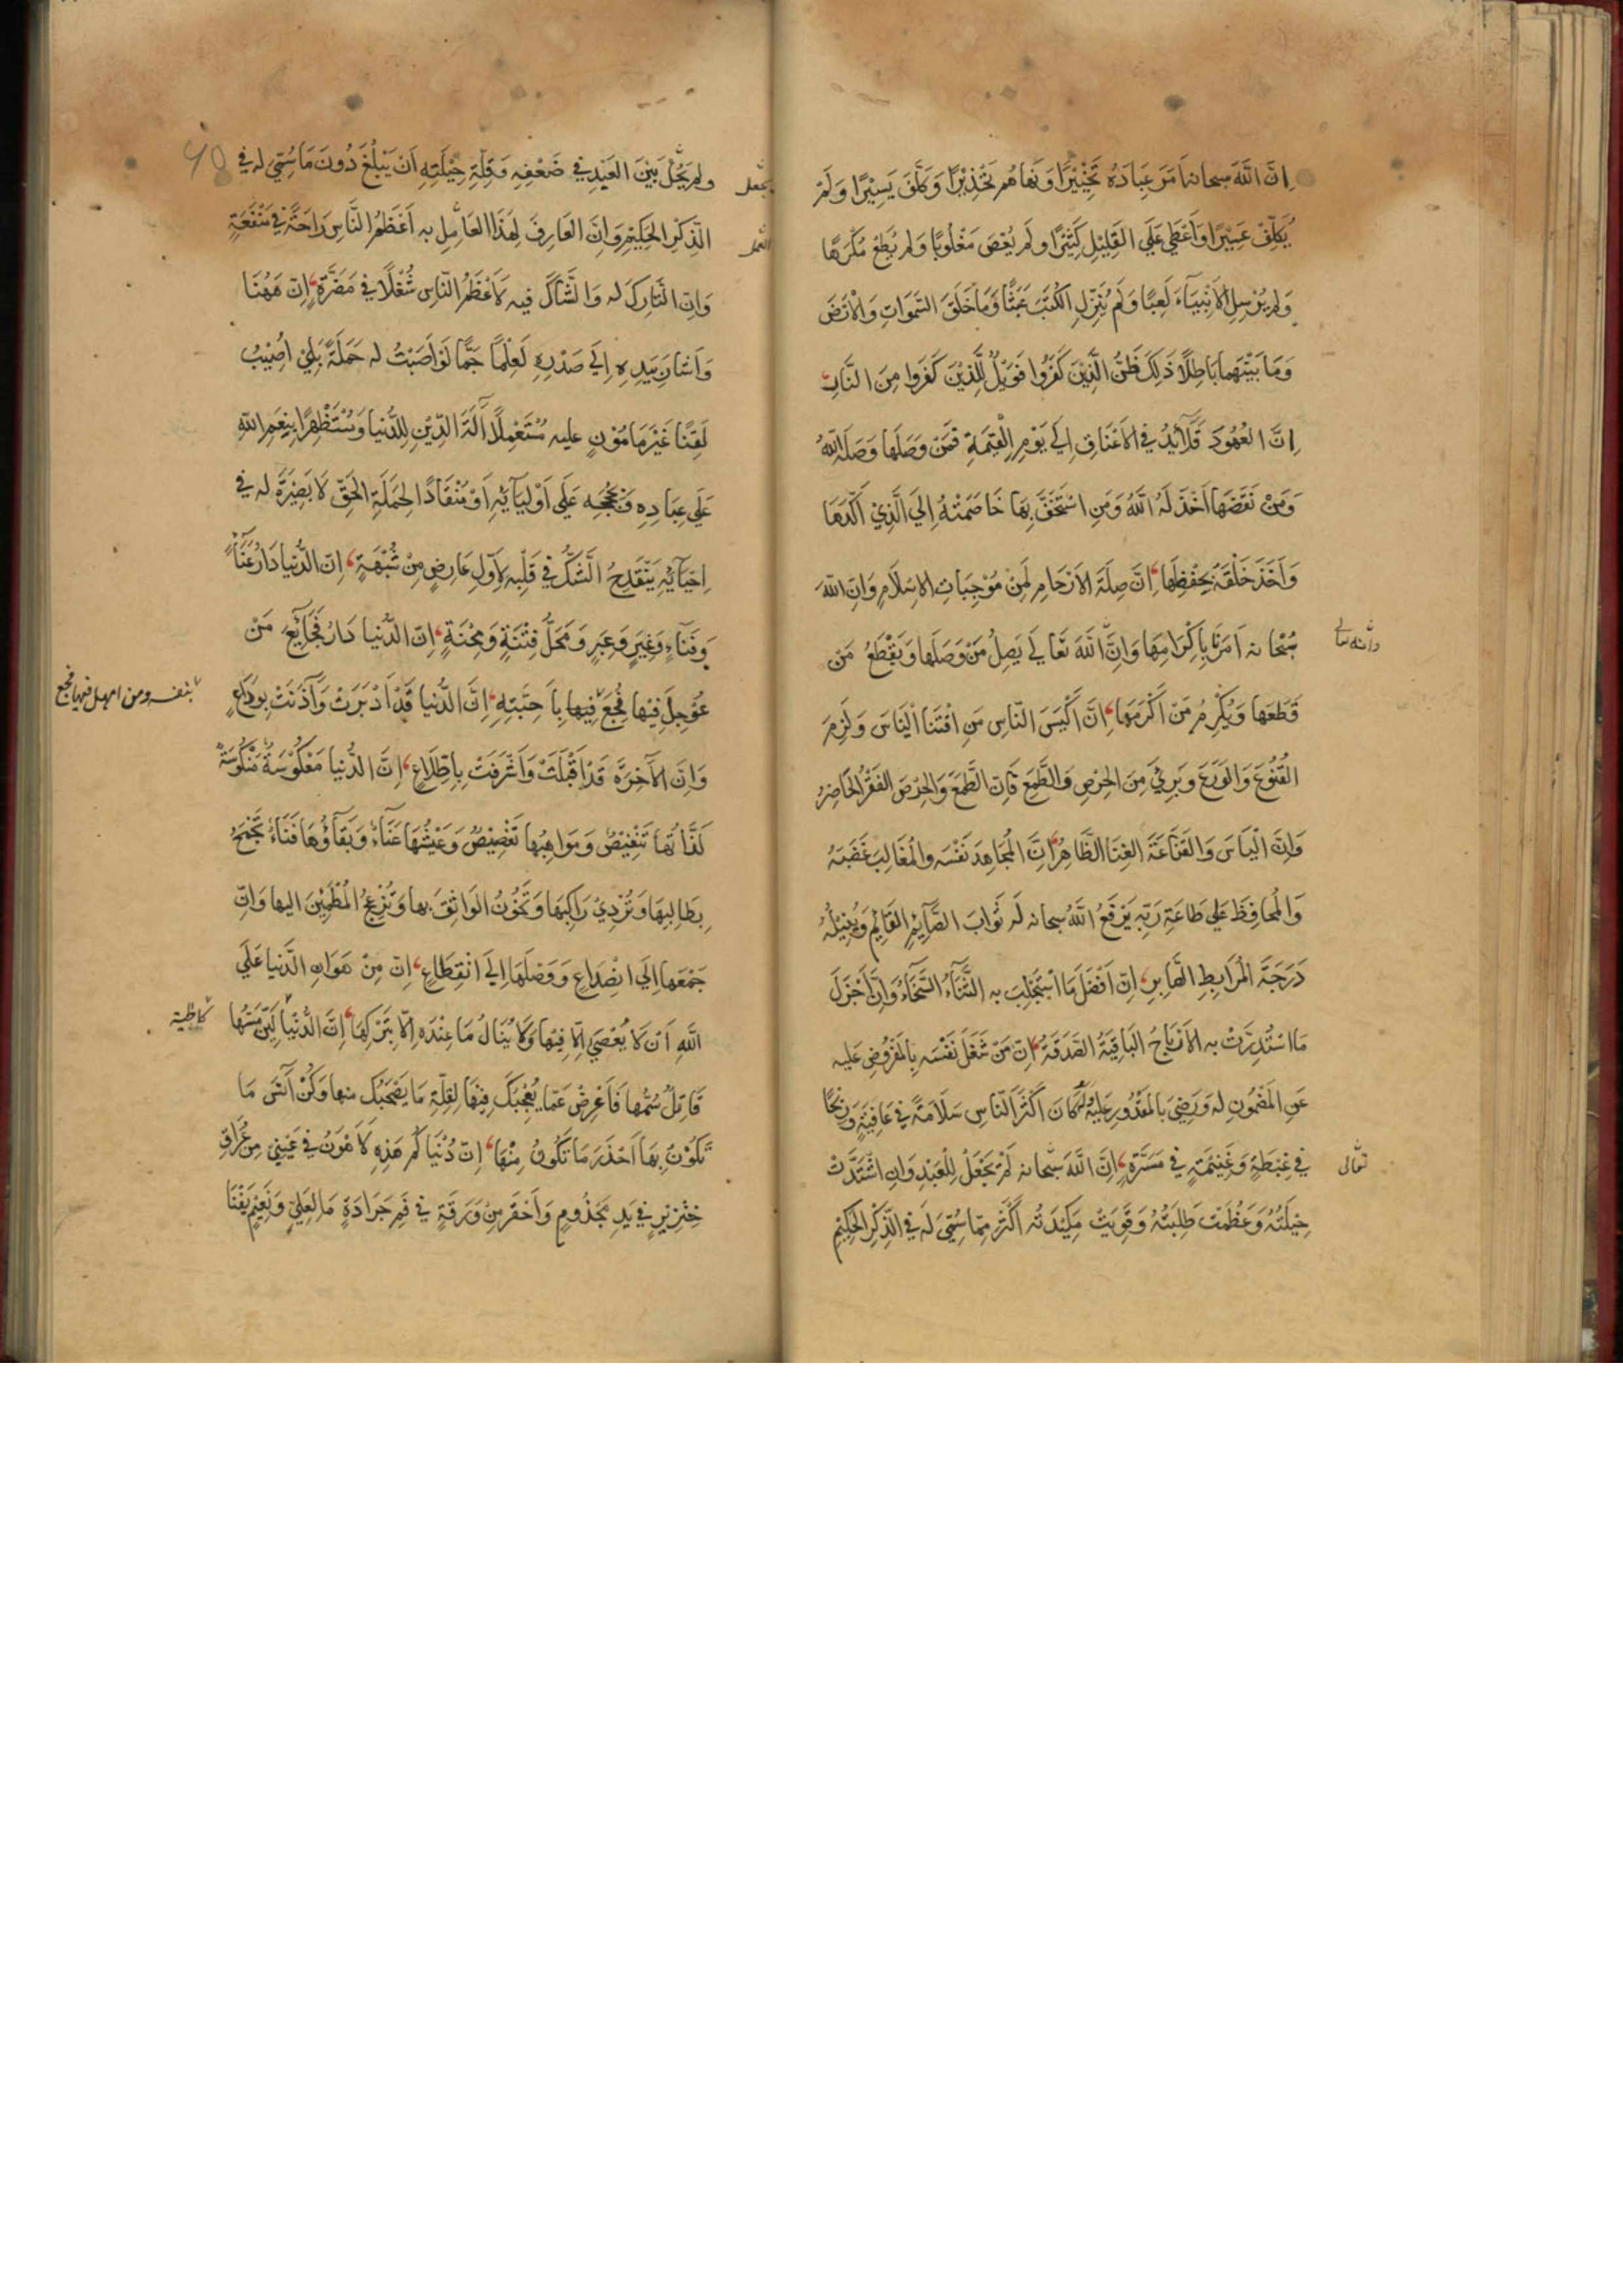 اِنَّ اللّٰهَ سبحانه اَمَرَ عِبَادَهُ تَخْيِيْرًا وَنَهَاهُمْ تَحْذِيْرًا وَكَلَّفَ يَسِيْرًا وَلَمْ
يُكَلِّفْ عَسِيْرًا وَاَعْطٰى عَلَى القَلِيْلِ كَثِيْرًا ولَمْ يُعْصَ مَغْلُوبًا وَلَم يُطَعْ مُكْرَهًا
وَلم يُرْسِلِ الاَنْبِيَآءَ لَعِبًا وَلَمْ يُنَزِّلِ الكُتُبَ عَبَثًا وَمَا خَلَقَ السَّمٰوَاتِ وَالْاَرْضَ
وَمَا بَيْنَهُما بَاطِلًا ذٰلِكَ ظَنُّ الَّذِيْنَ كَفَرُوا فَوَيْلٌ لِلَّذِيْنَ كَفَرُوا مِنَ النَّارِ
اِنَّ العُهُودَ قَلَآئِدُ في الاَعْنَاقِ اِلٰى يَوْمِ الْقِيٰمَةِ فَمَنْ وَصَلَها وَصَلَهُ اللّٰهُ
وَمَنْ نَقَضَهَا خَذَلَهُ اللّٰهُ وَمَنِ اسْتَخَفَّ بِهَا خَاصَمَتْهُ اِلَى الَّذِيْ اَكَّدَهَا
وَاَخَذَ خَلْقَهُ بِحِفْظِهَا، اِنَّ صِلَةَ الاَرْحَامِ لَمِنْ مُوْجِبَاتِ الاِسْلَامِ وَاِنَّ اللّٰهَ
سُبْحَانه اَمَرَنَا بِاِكْرَامِهَا وَاِنَّ اللّٰهَ تَعَالٰى يَصِلُ مَنْ وَصَلَها وَيَقْطَعُ مَنْ
وانه تعالى
قَطَعَها وَيُكْرِمُ مَنْ اَكْرَمَهَا، اِنَّ اَكْيَسَ النَّاسِ مَنِ اقْتَنَا الْيَاْسَ وَلَزِمَ
القُنُوعَ وَالوَرَعَ وَبَرِئَ مِنَ الحِرْصِ وَالطَّمَعِ فَاِنَّ الطَّمَعَ وَالحِرْصَ الفَقْرُ الحَاضِرُ
وَاِنَّ الْيَاْسَ وَالقَنَاعَةَ الغِنَا الظَّاهِرُ، اِنَّ المُجَاهِدَ نَفْسَه وَالمُغَالِبَ غَضَبَهُ
وَالمُحَافِظَ عَلى طَاعَةِ رَبِّهِ يَرْفَعُ اللّٰهُ سبحانه لَه ثَوَابَ الصَّآئِمِ القَآئِمِ وَيُنِيْلُهُ
دَرَجَةَ المُرَابِطِ الصَّابِرِ، اِنَّ اَفْضَلَ مَا اسْتُجْلِبَ به الثَّنَآءُ السَّخَآءُ وَاِنَّ اَجْزَلَ
مَا اسْتُدِرَّتْ به الاَرْبَاحُ البَاقِيَةُ الصَّدَقَةُ، اِنَّ مَنْ شَغَلَ نَفْسَه بِالمَفْرُوضِ عَلَيه
عَنِ المَضْمُونِ له وَرَضِيَ بِالمَقْدُورِ عَلَيْهِ وَلَهُ كَانَ اَكْثَرَ النَّاسِ سَلَامَةً في عَافِيَةٍ وَرِبْحًا
في غِبْطَةٍ وَغَنِيْمَةٍ في مَسَرَّةٍ، اِنَّ اللّٰهَ سُبْحَانه لَمْ يَجْعَلْ لِلْعَبْدِ وَاِنِ اشْتَدَّتْ
تعالى
حِيْلَتُهُ وَعَظُمَتْ طَلِبَتُهُ وَقَوِيَتْ مَكِيْدَتُه اَكْثَرَ مِمَّا سُمِّيَ لَه فِي الذِّكْرِ الحَكِيْمِ
ولم يَحُلْ بَيْنَ العَبْدِ في ضَعْفِه وَقِلَّةِ حِيْلَتِهِ اَنْ يَبْلُغَ دُونَ مَا سُمِّيَ له في
يجعل
الذِّكْرِ الحَكِيْمِ وَاِنَّ العَارِفَ لِهٰذَا العَامِلَ به اَعْظَمُ النَّاسِ رَاحَةً في مَنْفَعَةٍ
وَاِنَّ التَّارِكَ له وَالشَّاكَّ فيه لَاَعْظَمُ النَّاسِ شُغْلًا في مَضَرَّةٍ، اِنَّ هٰهُنَا
وَاَشَارَ بِيَدِهِ اِلٰى صَدْرِهِ لَعِلْمًا جَمًّا لَوْ اَصَبْتُ له حَمَلَةً بَلٰى اُصِيْبُ
لَقِنًا غَيْرَ مَامُوْنٍ عليه مُسْتَعْمِلًا آلَةَ الدِّيْنِ لِلدُّنْيا وَمُسْتَظْهِرًا بِنِعَمِ اللّٰهِ
عَلٰى عِبَادِهِ وَبِحُجَجِه عَلٰى اَوْلِيَآئِهِ اَوْ مُنْقَادًا لِحَمَلَةِ الحَقِّ لَا بَصِيْرَةَ له في
اِحْيَآئِهِ يَنْقَدِحُ الشَّكُّ في قَلْبِه لِاَوَّلِ عَارِضٍ مِنْ شُبْهَةٍ، اِنَّ الدُّنْيا دَارُ عَنَآءٍ
وَفَنَآءٍ وَغِيَرٍ وَعِبَرٍ وَمَحَلُّ فِتْنَةٍ وَمِحْنَةٍ، اِنَّ الدُّنيا دَارُ فَجَآئِعَ مَنْ
عُوْجِلَ فِيْها فُجِعَ فِيْها بِاَحِبَّتِهِ، اِنَّ الدُّنيا قَدْ اَدْبَرَتْ وَآذَنَتْ بِوَدَاعٍ
بنفسه ومن امهل فيها فجع
وَاِنَّ الآخِرَةَ قَدْ اَقْبَلَتْ وَاَشْرَفَتْ بِاطِّلَاعٍ، اِنَّ الدُّنيا مَعْكُوْسَةٌ مَنْكُوْسَةٌ
لَذَّاتُها تَنْغِيْصٌ وَمَوَاهِبُها تَغْصِيْصٌ وَعَيْشُهَا عَنَآءٌ وَبَقَآؤُهَا فَنَآءٌ تَجْمَحُ
بِطَالِبِهَا وَتُرْدِيْ رَاكِبَهَا وَتَخُوْنُ الوَاثِقَ بها وَتُزْعِجُ المُطْمَئِنَّ اليها وَاِنَّ
جَمْعَها اِلَى انْصِدَاعٍ وَوَصْلَهَا اِلَى انْقِطَاعٍ، اِنَّ مِنْ هَوَانِ الدُّنيا عَلَى
اللّٰهِ اَنْ لَا يُعْصٰى اِلَّا فِيْهَا وَلَا يُنَالُ مَا عِنْدَه اِلَّا بِتَرْكِهَا، اِنَّ الدُّنْيَا لَيِّنٌ مَسُّهَا
قَاتِلٌ سُمُّها فَاَعْرِضْ عَمَّا يُعْجِبُكَ فِيْهَا لِقِلَّةِ مَا يَصْحَبُكَ منها وَكُنْ آنَسَ مَا
تَكُوْنُ بِهَا اَحْذَرَ مَا تَكُونُ مِنْهَا، اِنَّ دُنْيَاكُمْ هٰذِهِ لَاَهْوَنُ في عَيْنِيْ مِنْ عُرَاقِ
خِنْزِيْرٍ في يَدِ مَجْذُومٍ وَاَحْقَرُ مِنْ وَرَقَةٍ في فَمِ جَرَادَةٍ مَا لِعَلِيٍّ وَنَعِيْمٍ يَفْنَا